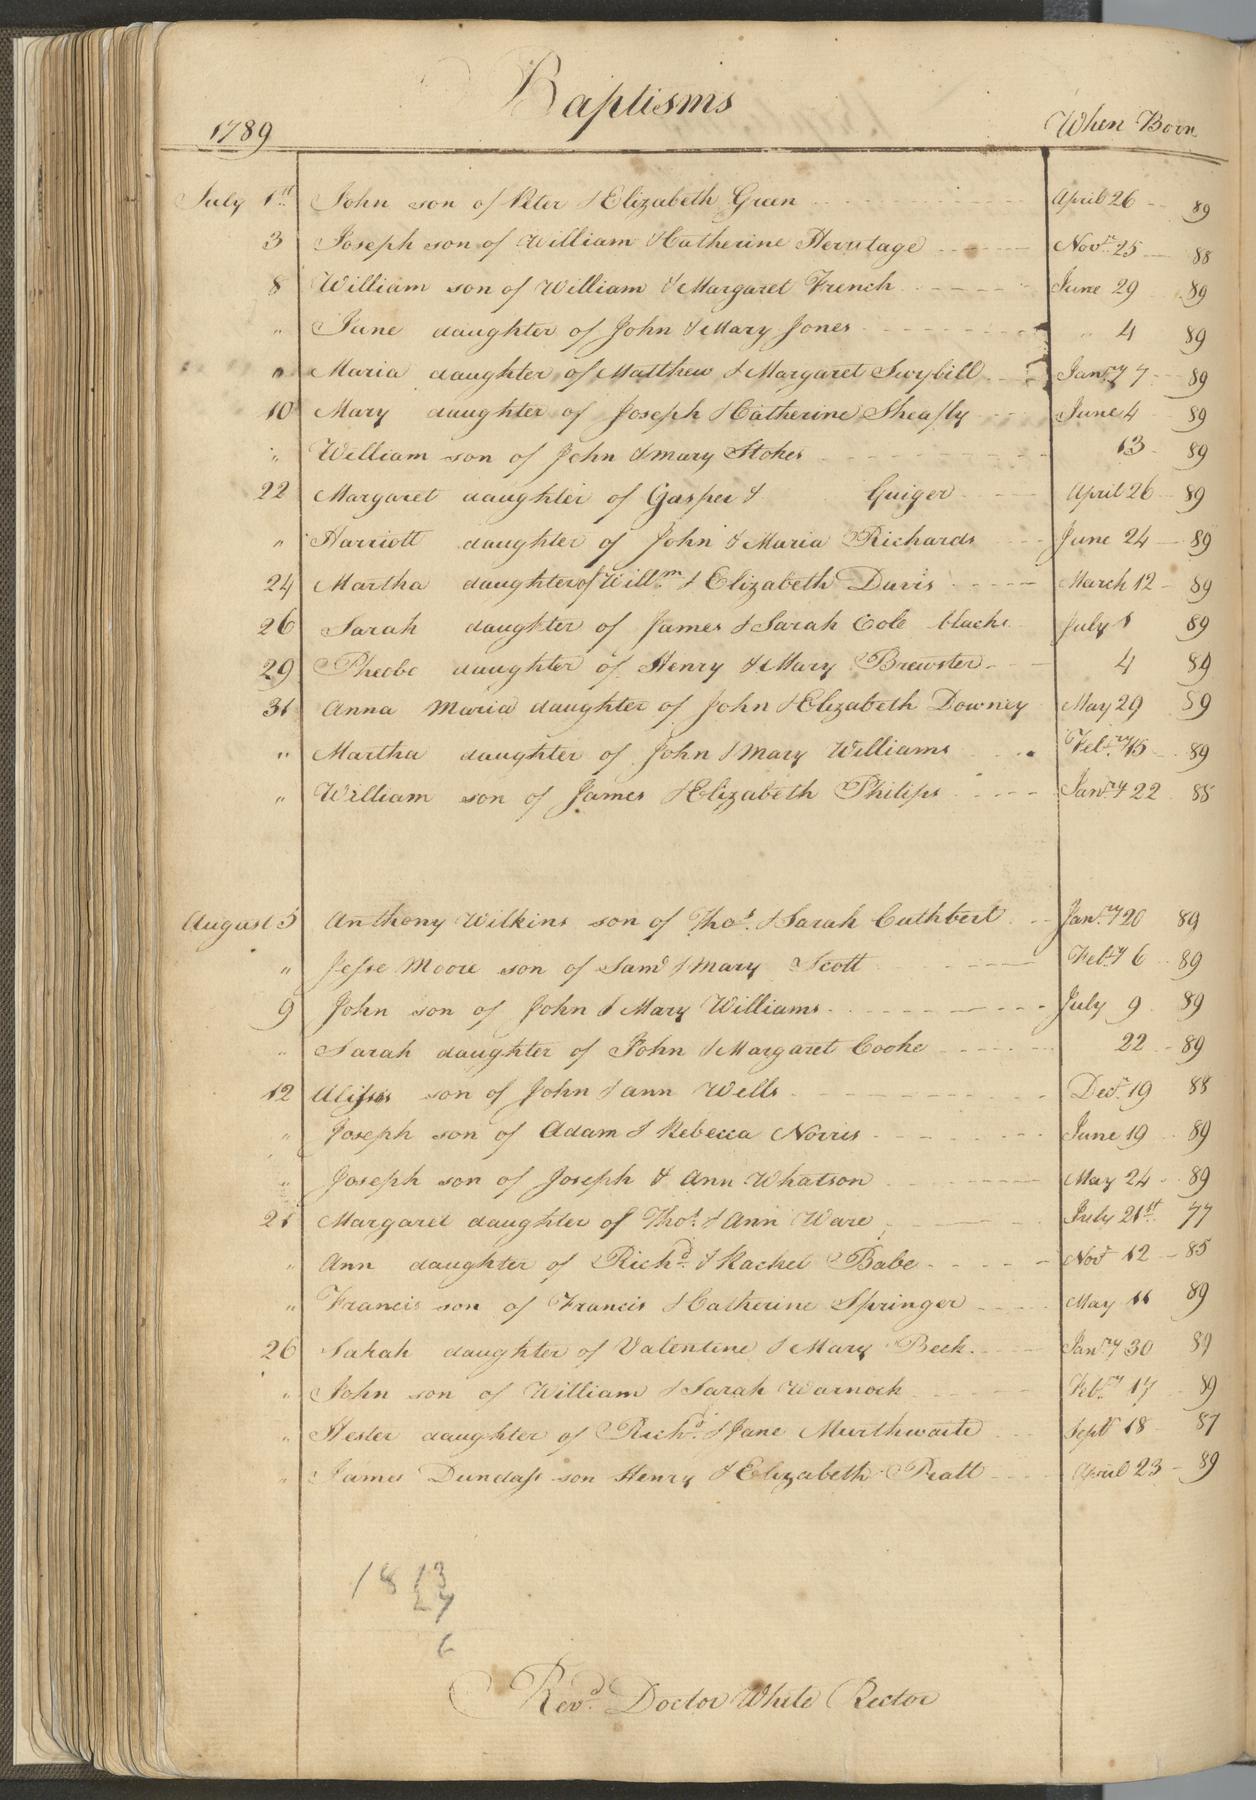 Baptisms
1789 When Born
July 1st John son of Peter & Elizabeth Green April 26 89
3 Joseph son of William & Catherine Heritage Novr 25 88
8 William son of William & Margaret French June 29 89
" June daughter of John & Mary Jones " 4 89
" Maria daughter of Matthew & Margaret Swybill Janry 7 89
10 Mary daughter of Joseph & Catherine Sheafly June 4 89
" William son of John & Mary Stokes 13 89
22 Margaret daughter of Gasper & Guiger April 26 89
" Harriott daughter of John & Maria Richards June 24 89
24 Martha daughter of Willm & Elizabeth Davis March 12 89
26 Sarah daughter of James & Sarah Cole blacks July 1 89
29 Pheobe daughter of Henry & Mary Brewster 4 89
31 Anna Maria daughter of John & Elizabeth Downey May 29 89
" Martha daughter of John & Mary Williams Febry 15 89
" William son of James & Elizabeth Philips Janry 22 88
August 5 Anthony Wilkins son of Thos. & Sarah Cuthbert Janry 20 89
" Jesse Moore son of Saml & Mary Scott Febry 6 89
9 John son of John & Mary Williams July 9 89
" Sarah daughter of John & Margaret Cooke 22 89
12 son of John & Ann Wells Decr 19 88
" Joseph son of Adam & Rebecca Norris June 19 89
" Joseph son of Joseph & Ann Whatson May 24 89
21 Margaret daughter of Thos. & Ann Ware July 21st 77
" Ann daughter of Richd & Rachel Babe Novr 12 85
" Francis son of Francis & Catherine Springer May 11 89
26 Sarah daughter of Valentine & Mary Beck Janry 30 89
" John son of William & Sarah Warnock Febry 17 89
" Hester daughter of Richd & Jane Murthwaite Septr 18 87
" James Dundass son Henry & Elizabeth Pratt April 23 89
1813
27
6
Revd. Doctor White Rector